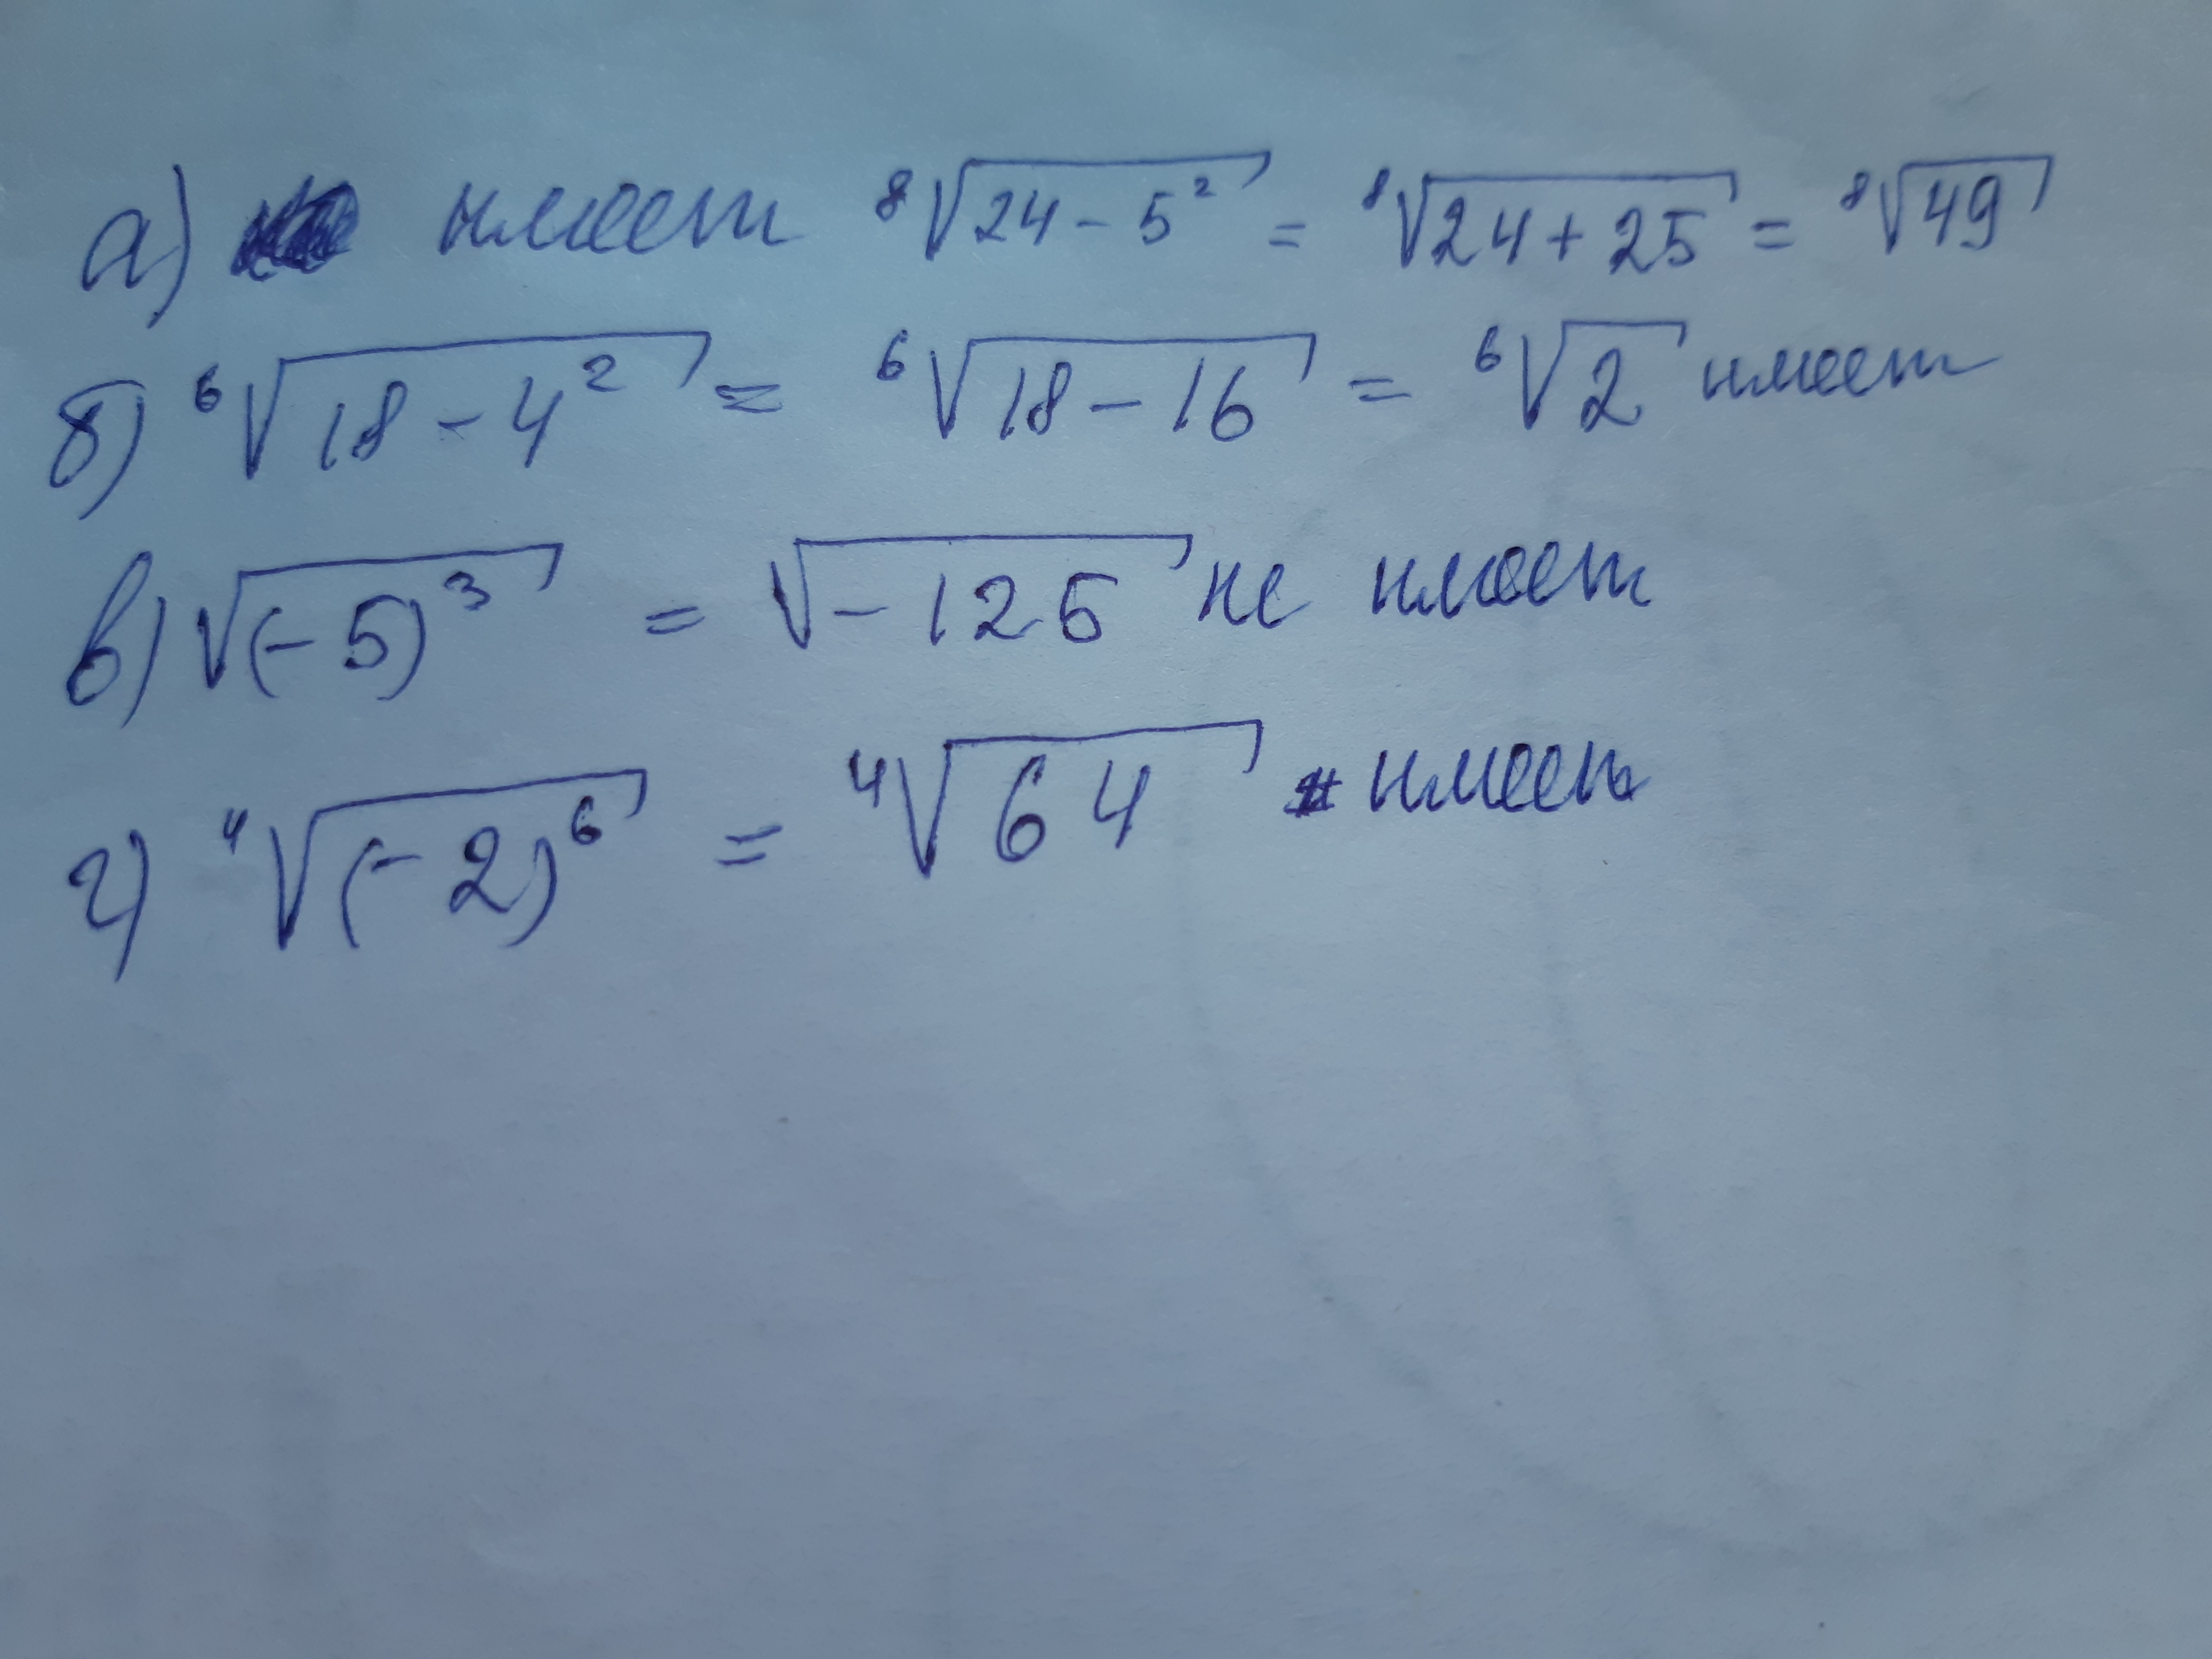 а) имеет ⁸√24 - 5² = ⁸√24 + 25 = ⁸√49
б) ⁶√18 - 4² = ⁶√18 - 16 = ⁶√2 имеет
в) √(-5)³ = √-125 не имеет
г) ⁴√(-2)⁶ = ⁴√64 имеет